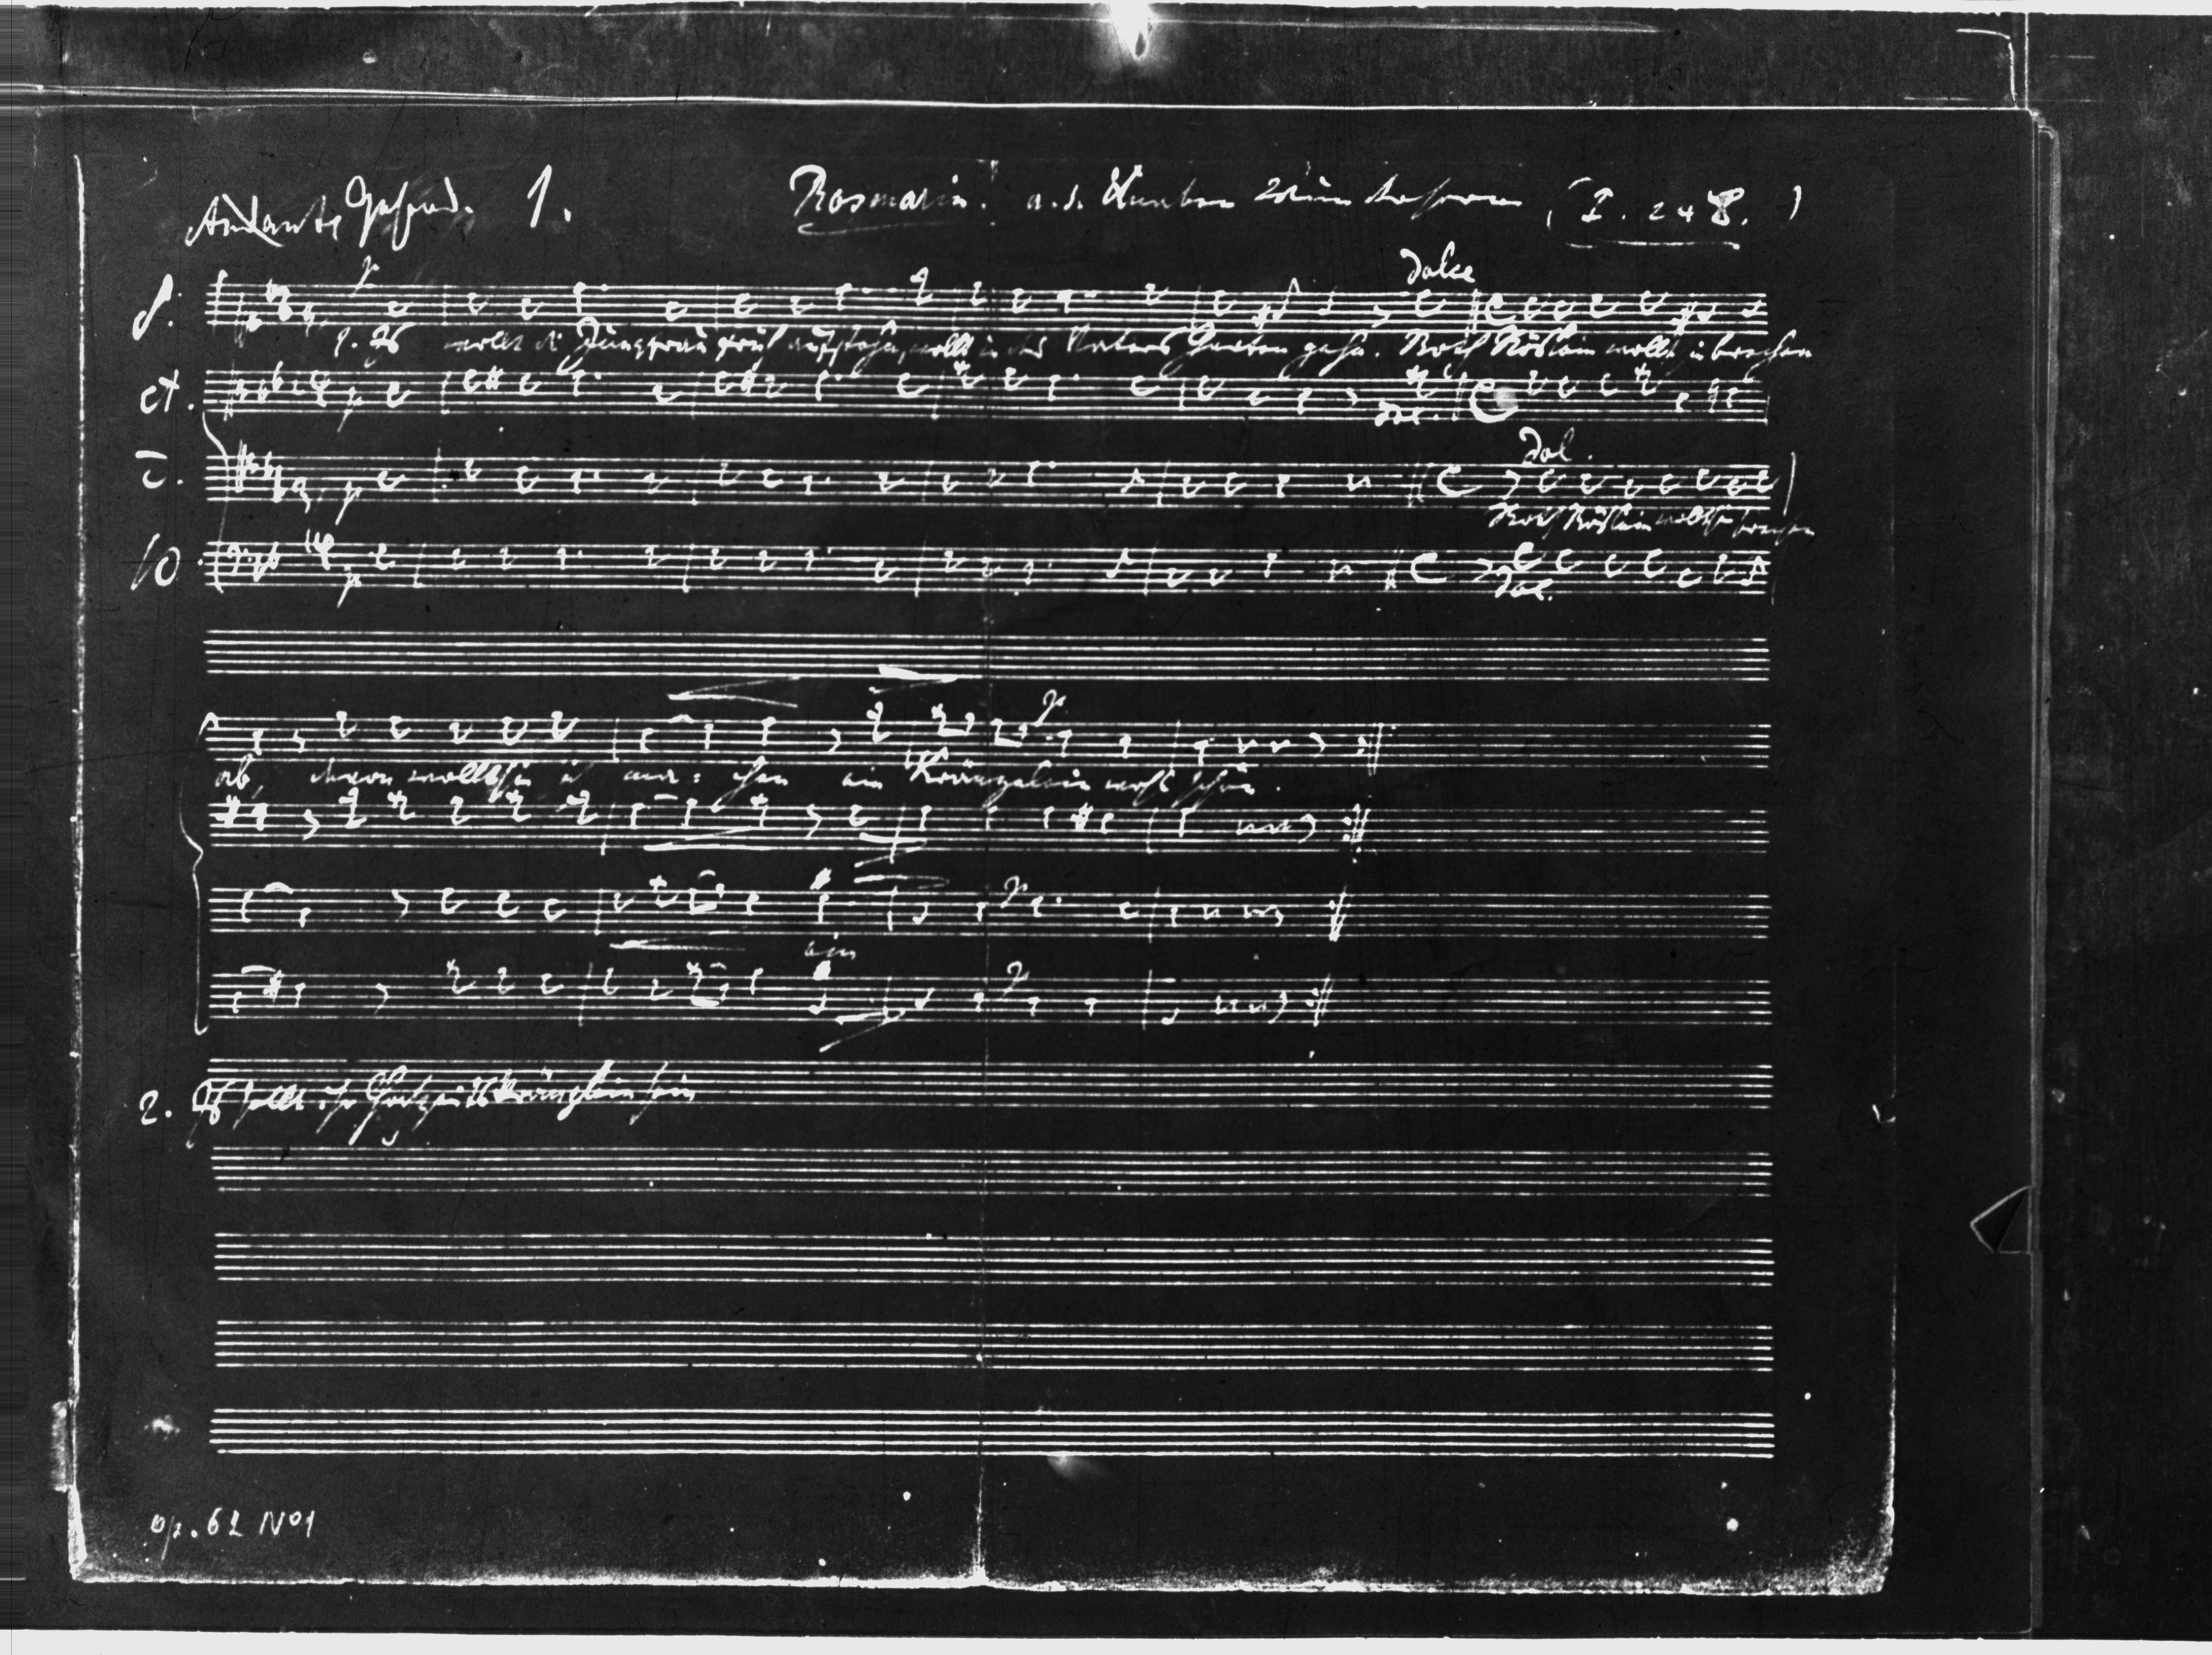 Andante 1. Rosmarin. a. d. Knaben Wunderhorn (I. 248.)
dolce
S.
p
1. Es wollt die Jungfrau früh aufstehn, wollt in des Vaters Garten gehn. Roth Röslein wollt sie brechen
A.
p
dol.
T.
p
dol.
Roth Röslein wollt sie brechen
B.
p
dol.
p
ab, davon wollt sie sich ma: chen ein Kränzelein wohl schön.
p
ein
p
2. Es sollt ihr Hochzeitskränzlein sein
op. 62 No1